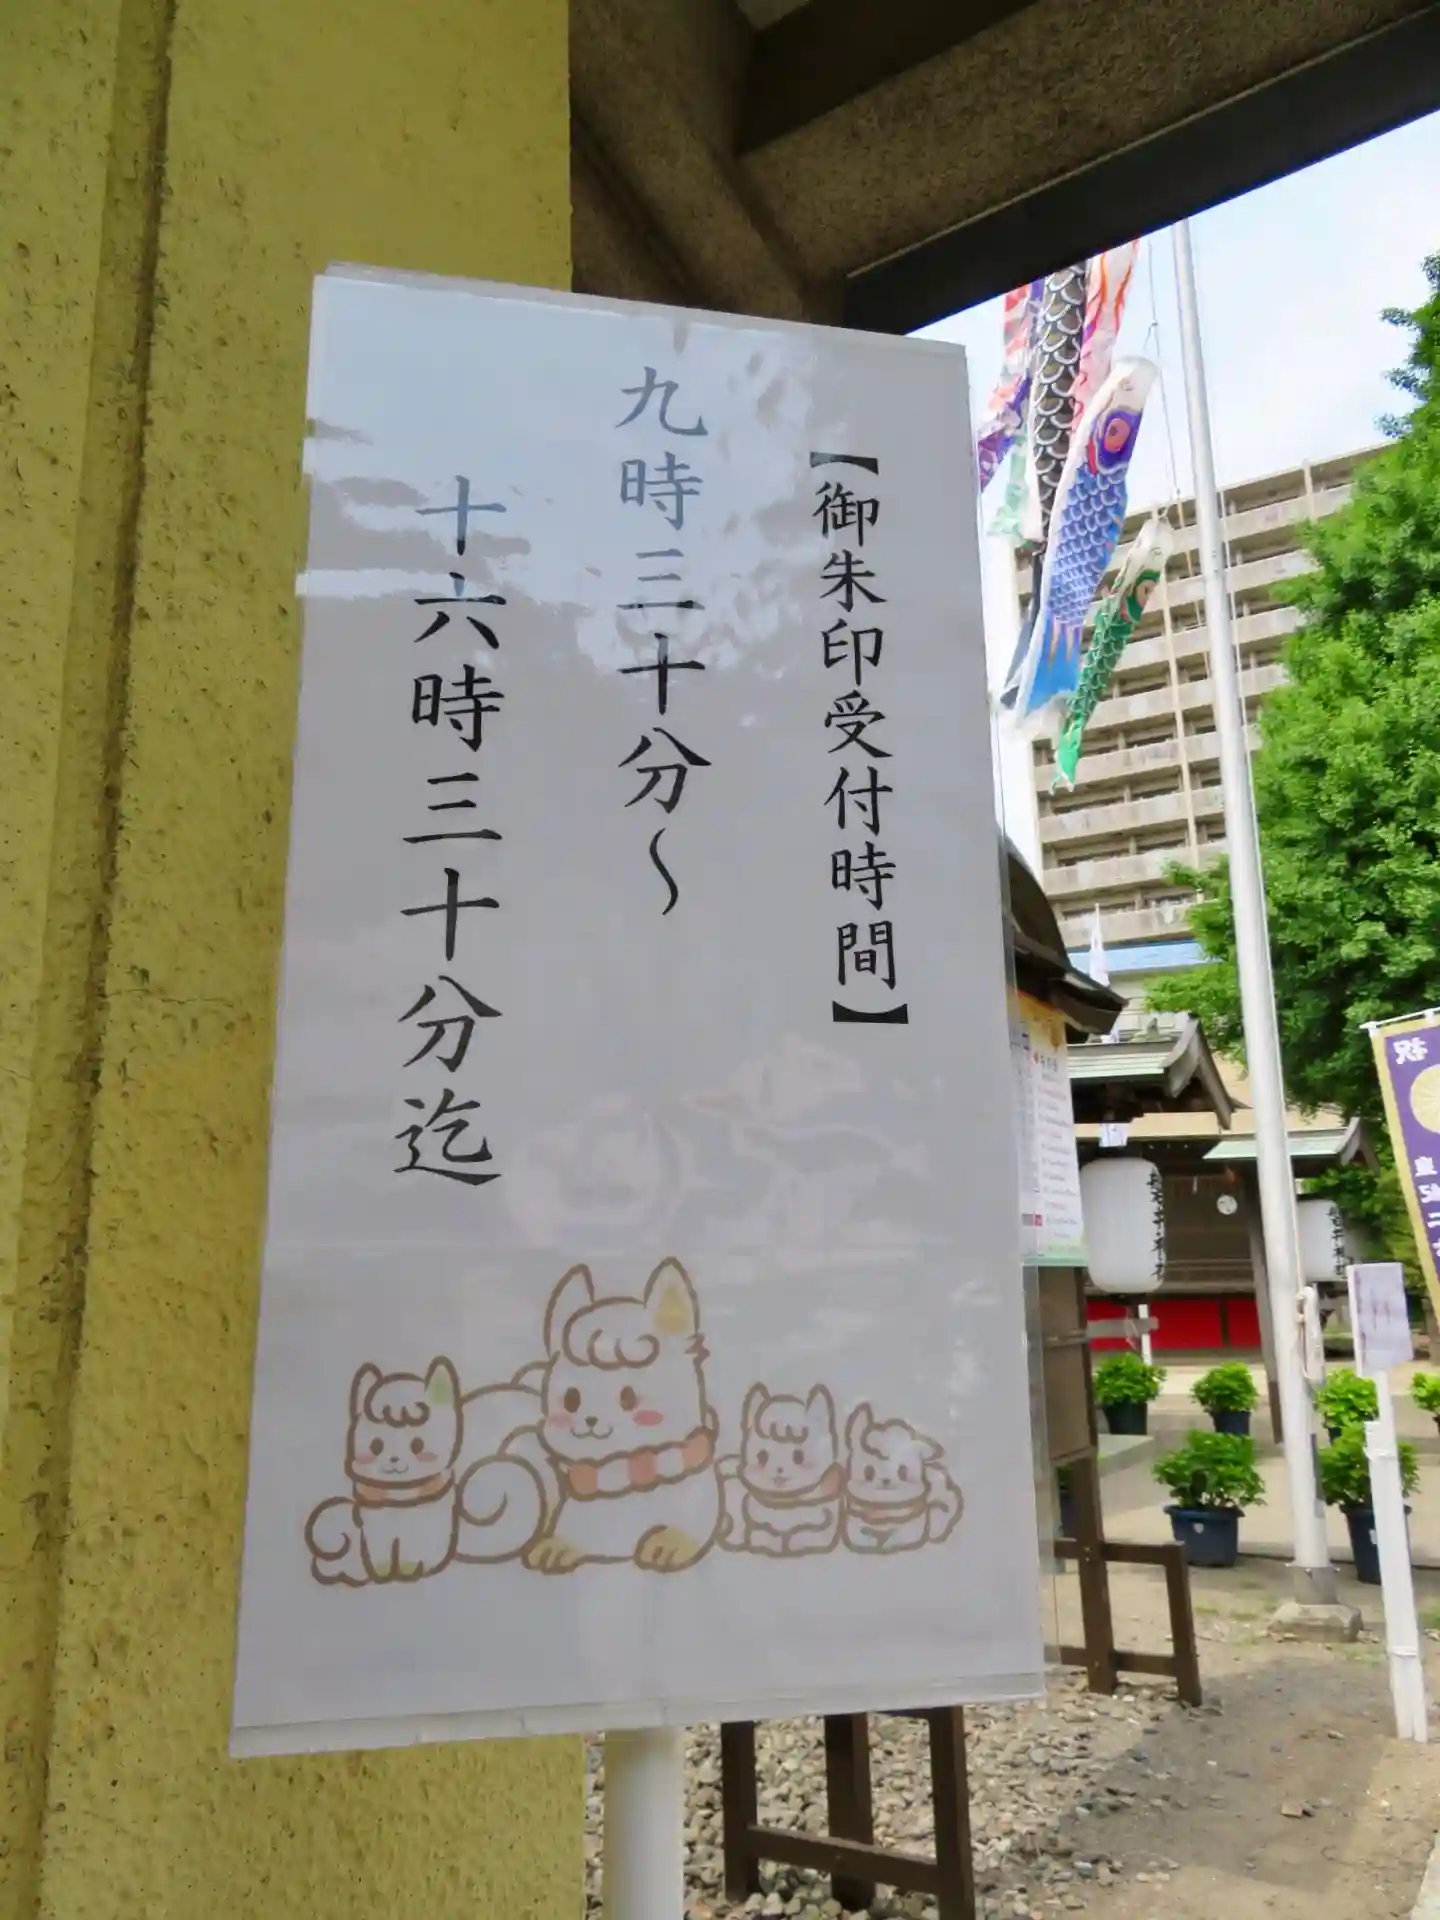 【御朱印受付時間】
九時三十分～
十六時三十分迄
祝